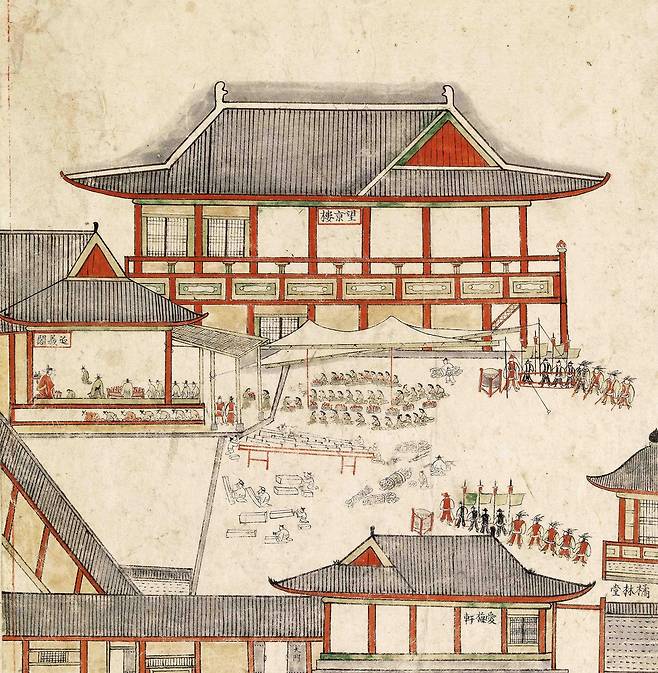 望京樓
延曦閣
橘林堂
愛梅軒